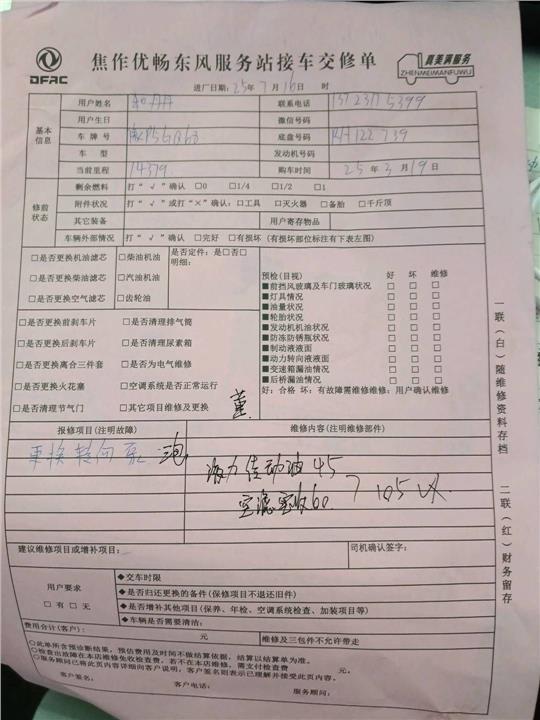 DFAC
焦作优畅东风服务站接车交修单
真美满服务
ZHENMEIMANFUWU
进厂日期：25年7月16日 时
基本信息
用户姓名
联系电话
用户生日
微信号码
车牌号
底盘号码 RH122739
车型
发动机号码
当前里程 14379
购车时间 25年3月19日
修前状态
剩余燃料 打“√”确认 □0 □1/4 □1/2 □1
附件状况 打“√”或打“×”确认：□工具 □灭火器 □备胎 □千斤顶
其它装备
用户寄存物品
车辆外部情况 打“√”确认 □完好 □有损坏（有损坏部位标注有下表左图）
□是否更换机油滤芯 □柴油机油 是否定件：是□否□
明细：
□是否更换柴油滤芯 □汽油机油
□是否更换空气滤芯 □齿轮油
□是否更换前刹车片 □是否清理排气筒
□是否更换后刹车片 □是否清理尿素箱
□是否更换离合三件套 □是否为电气维修
□是否更换火花塞 □空调系统是否正常运行
□是否清理节气门 □其它项目维修及更换
预检（目视） 好 坏 维修
■前挡风玻璃及车门玻璃状况 □ □ □
■灯具情况 □ □ □
■油量状况 □ □ □
■轮胎状况 □ □ □
■发动机机油状况 □ □ □
■防冻防锈瓶状况 □ □ □
■制动液液面 □ □ □
■动力转向液液面 □ □ □
■变速箱漏油情况 □ □ □
■后桥漏油情况 □ □ □
好：合格 坏：有故障需维修维修：用户确认维修
董
报修项目（注明故障）
维修内容（注明维修部件）
更换转向泵
液力传动油 45
空滤 60
105
建议维修项目或增补项目：
司机确认签字：
用户要求
□有 □无
◆交车时限
◆是否归还更换的备件（保修项目不退还旧件）
◆是否增补其他项目（保养、年检、空调系统检查、加装项目等）
◆车辆是否需要清洁：
费用合计（客户）： 元
维修及三包件不允许带走
○此单所含预诊断结果，预估费用及时间不做结算依据，结算以结算单为准。
○检查出故障在本店维修免收检查费，若不在本店维修，需支付检查费 元。
○服务顾问已将此页内容详细向客户说明，客户签名则表示已理解并接受此页内容。
客户签名：
客户电话：
服务顾问：
一联（白）随维修资料存档
二联（红）财务留存